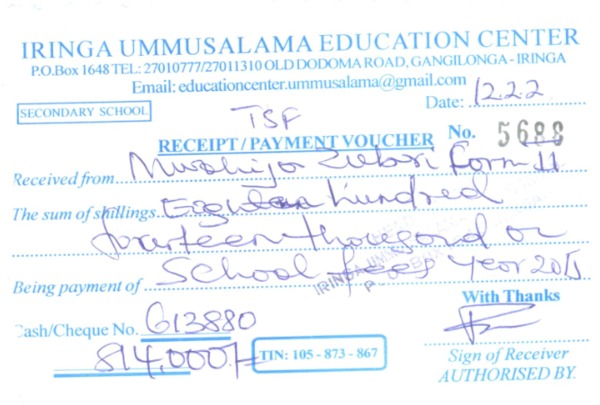 IRINGA UMMUSALAMA EDUCATION CENTER
P.O.Box 1648 TEL: 27010777/27011310 OLD DODOMA ROAD, GANGILONGA - IRINGA
Email: educationcenter.ummusalama@gmail.com
SECONDARY SCHOOL
TSF
Date: 12.2.2
RECEIPT / PAYMENT VOUCHER No. 5688
Received from Form 11
The sum of shillings hundred
fourteen thousand on
Being payment of School fees Year
With Thanks
Cash/Cheque No. 613880
814,000/= TIN: 105 - 873 - 867
Sign of Receiver
AUTHORISED BY.